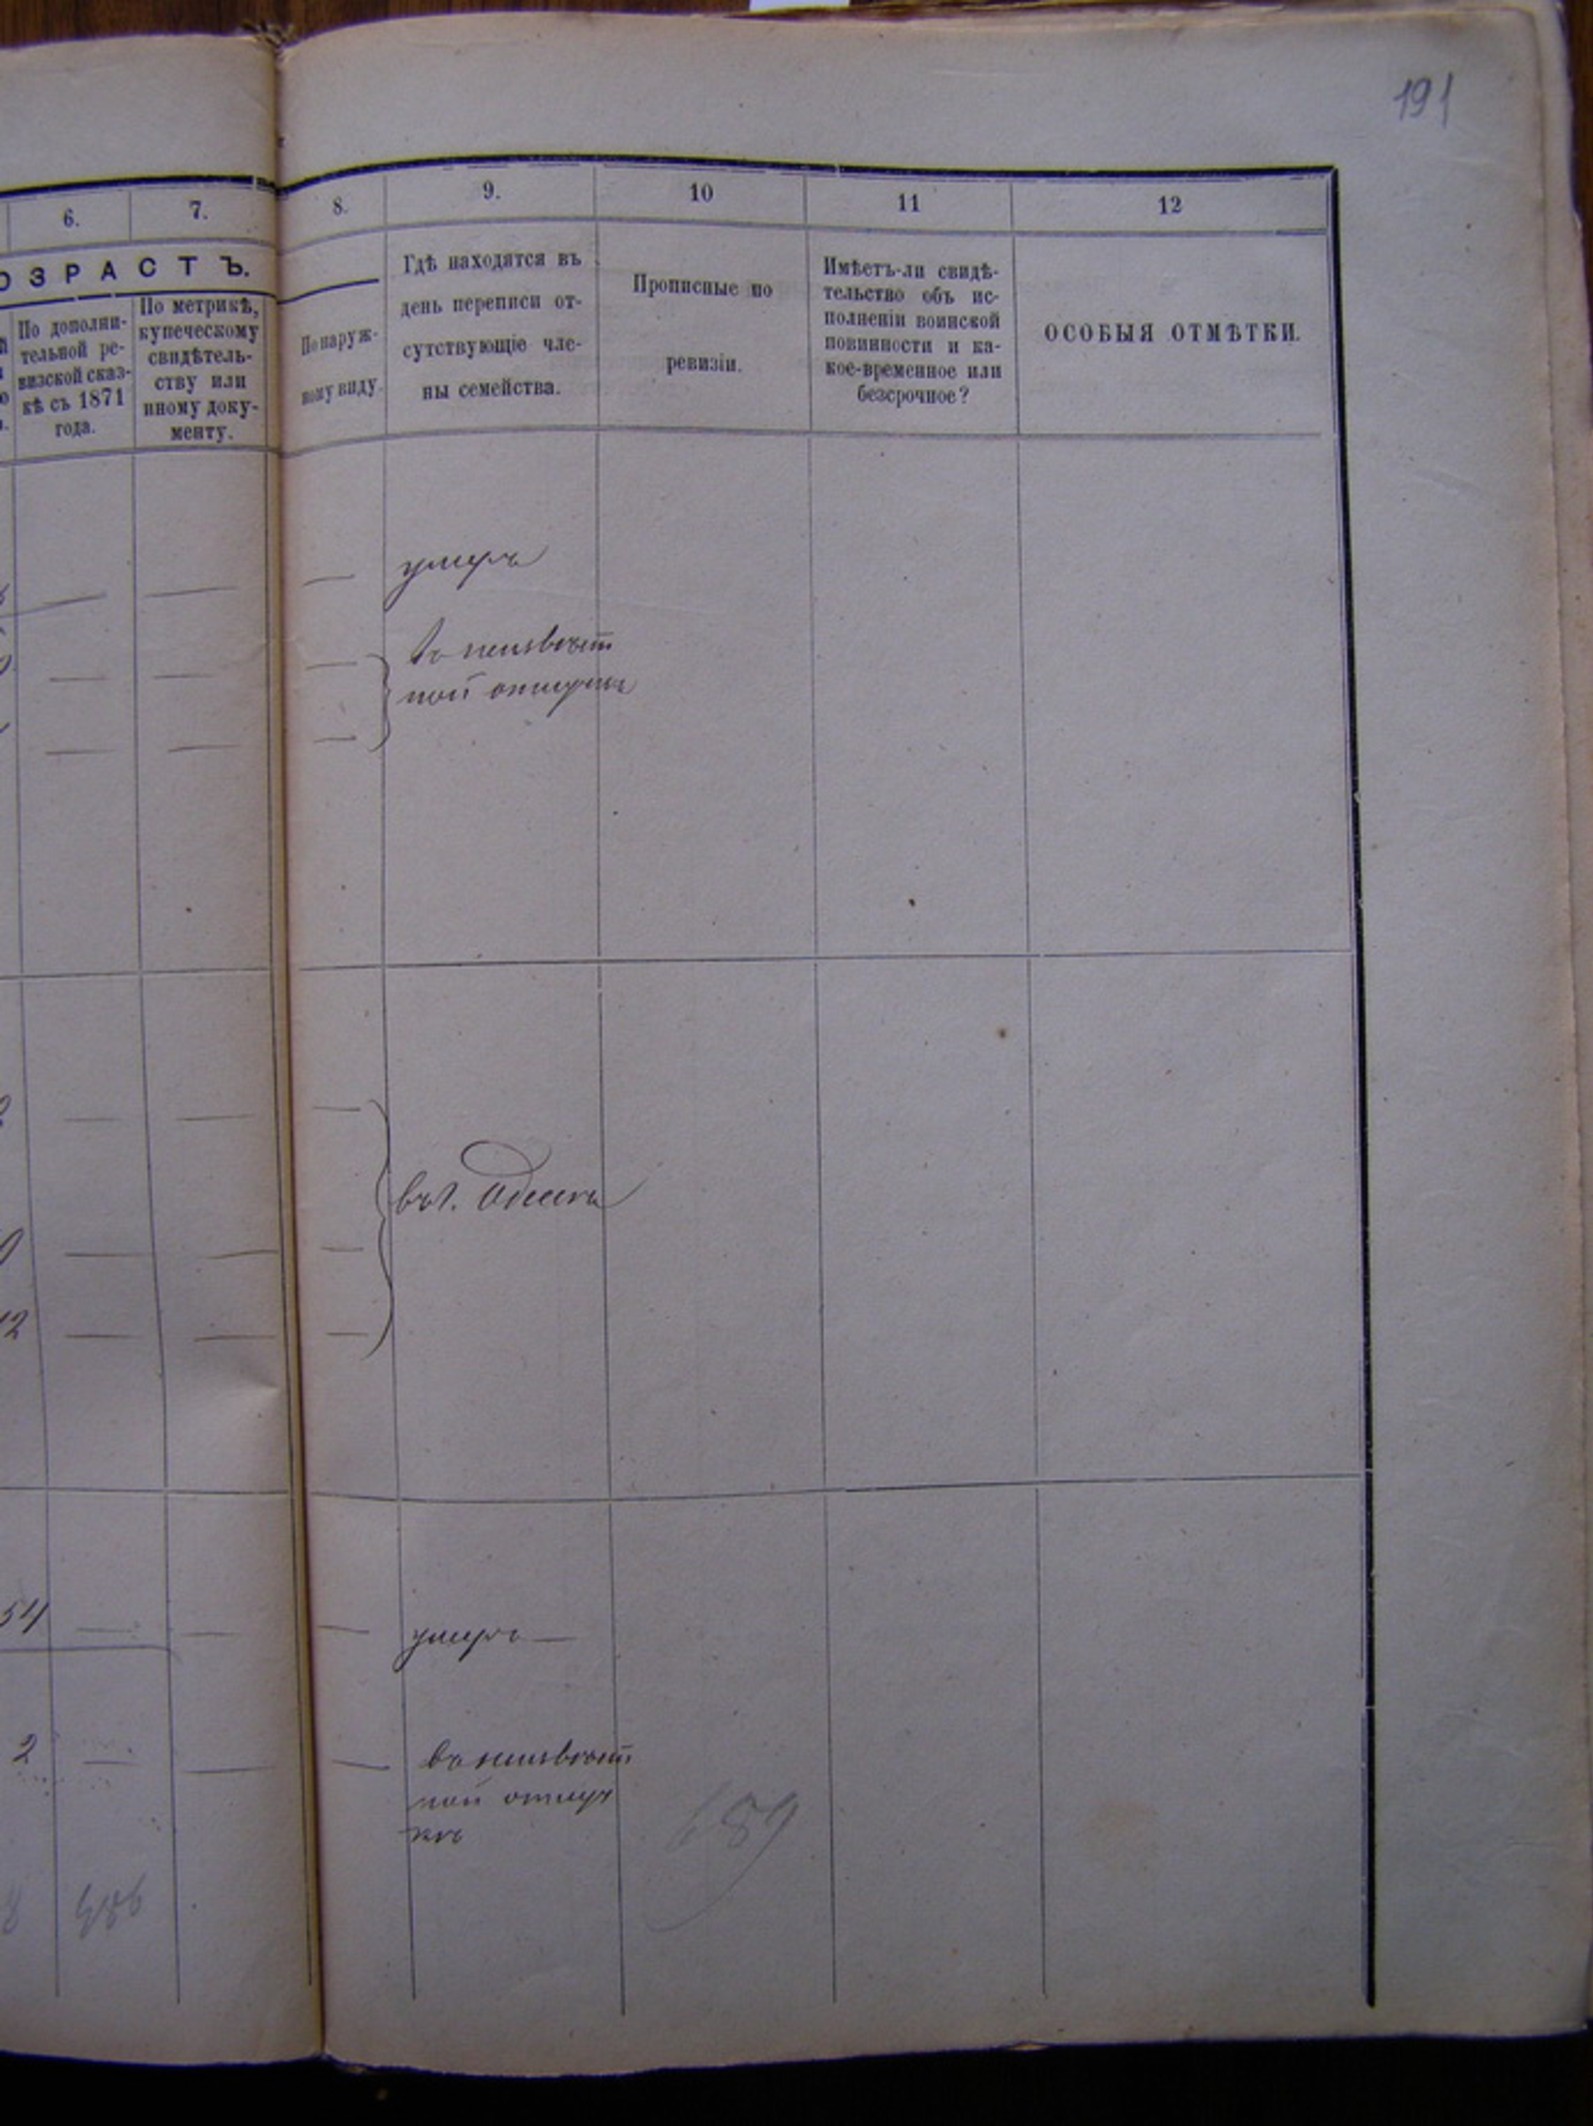 191
6.
7.
8.
9.
10
11
12
ОЗРАСТЪ.
По дополни-
тельной ре-
визской сказ-
кѣ съ 1871
года.
По метрикѣ,
купеческому
свидѣтель-
ству или
иному доку-
менту.
По наруж-
ному виду.
Гдѣ находятся въ
день переписи от-
сутствующіе чле-
ны семейства.
Прописные по
ревизіи.
Имѣетъ-ли свидѣ-
тельство объ ис-
полненіи воинской
повинности и ка-
кое-временное или
безсрочное?
ОСОБЫЯ ОТМѢТКИ.
умеръ
въ неизвѣст
ной отлучкѣ
въ г. Одессѣ
12
54
умеръ
2
въ неизвѣст
ной отлуч
кѣ
689